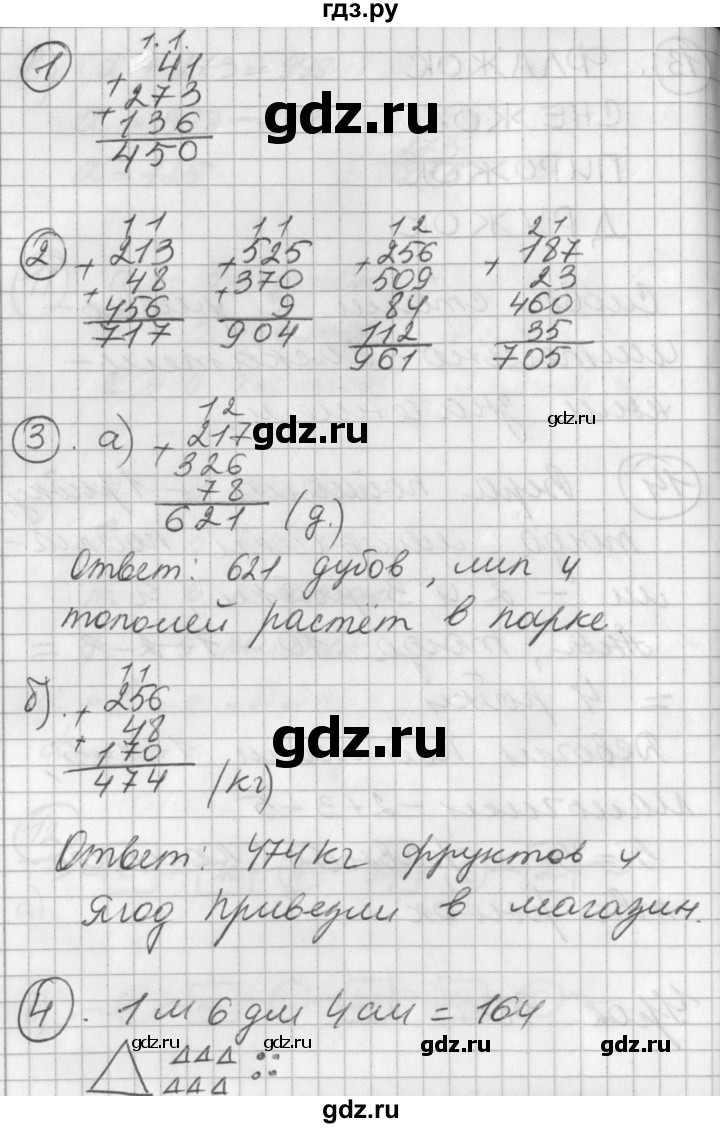 гдз.ру
1
1.1.
41
+273
+136
450
gdz.ru
2
11
+213
+48
456
717
11
+525
+370
9
904
12
+256
509
84
112
961
21
+187
23
460
35
705
3. а)
12
+217
326
78
621 (д.)
gdz.ru
gdz.ru
Ответ: 621 дубов, лип и
тополей растёт в парке.
б).
11
+256
+48
170
474 (кг)
gdz.ru
Ответ: 474 кг фруктов и
ягод привезли в магазин.
4. 1 м 6 дм 4 см = 164
gdz.ru gdz.ru gdz.ru gdz.ru
gdz.ru